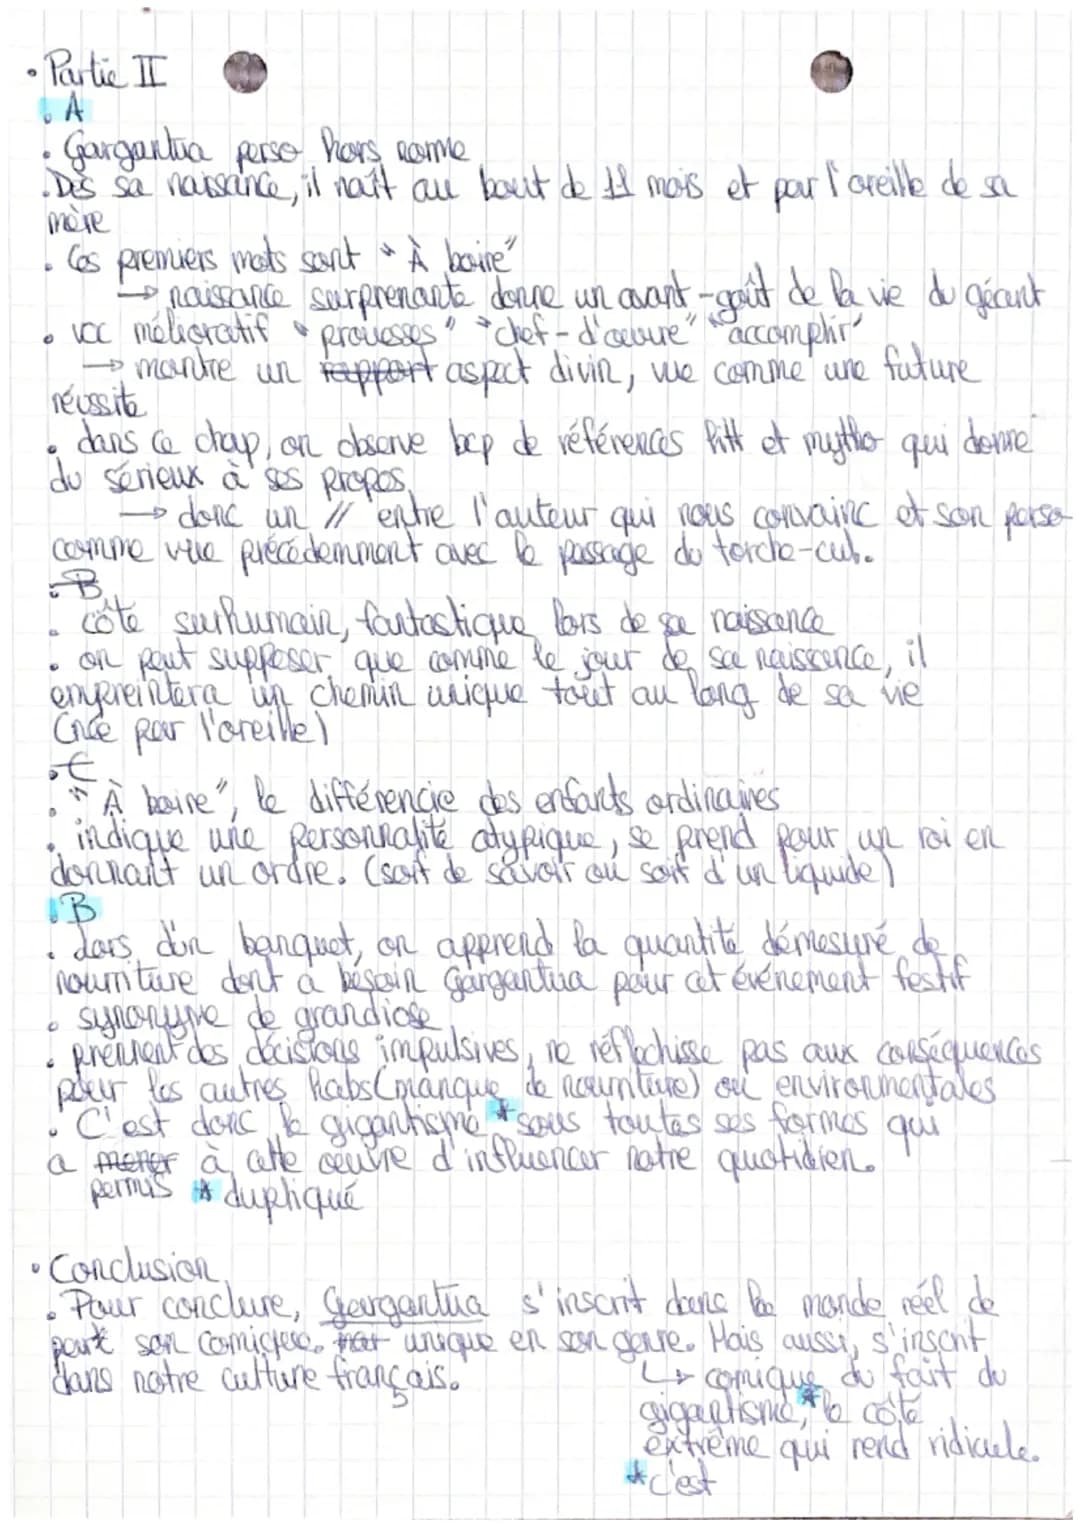 • Partie II
• A
• Gargantua perso hors norme
• Dès sa naissance, il naît au bout de 11 mois et par l'oreille de sa
mère
• Ces premiers mots sont "À boire"
→ naissance surprenante donne un avant-goût de la vie du géant
• voc mélioratif "prouesses" "chef-d'œuvre" "accomplir"
→ montre un rapport aspect divin, vue comme une future
réussite
• dans ce chap, on observe bcp de références litt et mytho qui donne
du sérieux à ses propos
→ donc un // entre l'auteur qui nous convainc et son perso
comme vue précédemment avec le passage du torche-cul.
• B
• côté surhumain, fantastique lors de sa naissance
• on peut supposer que comme le jour de sa naissance, il
empreintera un chemin unique tout au long de sa vie
(née par l'oreille)
• C
• "À boire", le différencie des enfants ordinaires
• indique une personnalité atypique, se prend pour un roi en
donnant un ordre. (soif de savoir ou soif d'un liquide)
• B
• Lors d'un banquet, on apprend la quantité démesuré de
nourriture dont a besoin Gargantua pour cet événement festif
• synonyme de grandiose
• prennent des décisions impulsives, ne réflechisse pas aux conséquences
pour les autres habs (manque de nourriture) ou environmentales
• C'est donc le gigantisme * sous toutes ses formes qui
a mener à cette œuvre d'influencer notre quotidien.
permis * dupliqué
• Conclusion
• Pour conclure, Gargantua s'inscrit dans le monde réel de
part son comique. unique en son genre. Mais aussi, s'inscrit
dans notre culture français.
↳ comique du fait du
gigantisme, * le côté
extrême qui rend ridicule.
* c'est